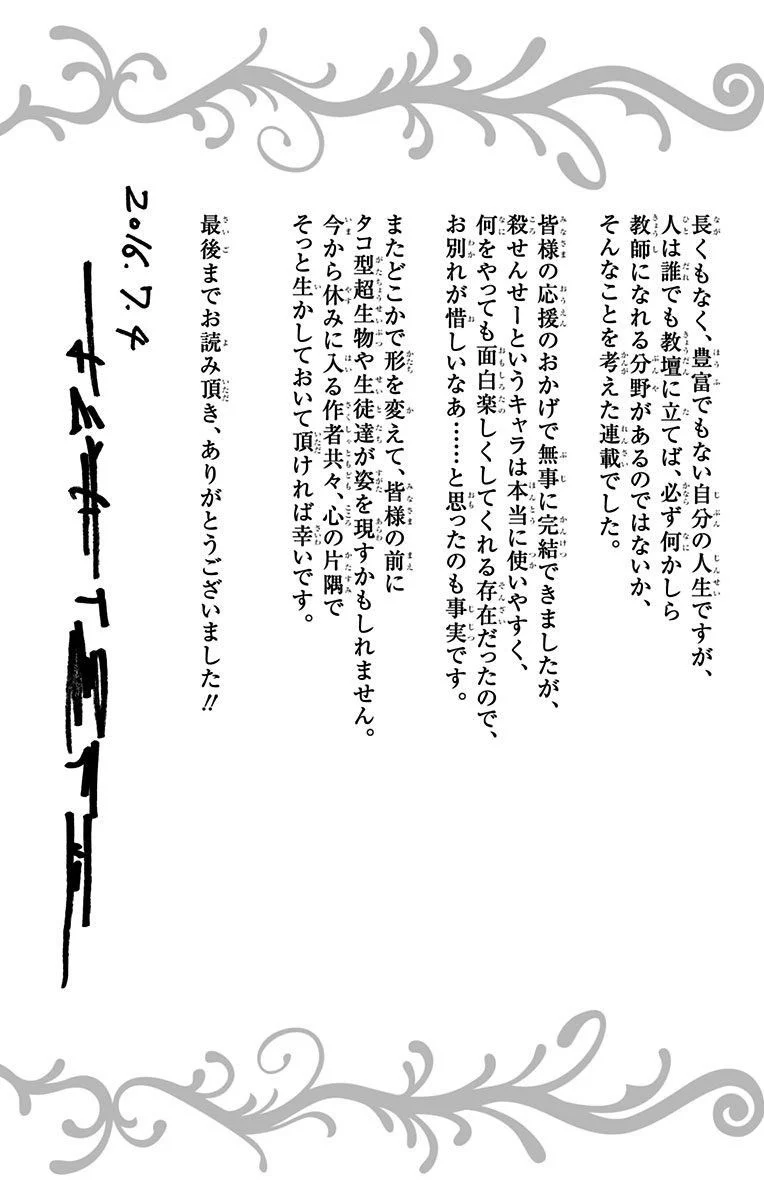 長くもなく、豊富でもない自分の人生ですが、
人は誰でも教壇に立てば、必ず何かしら
教師になれる分野があるのではないか、
そんなことを考えた連載でした。
皆様の応援のおかげで無事に完結できましたが、
殺せんせーというキャラは本当に使いやすく、
何をやっても面白楽しくしてくれる存在だったので、
お別れが惜しいなあ……と思ったのも事実です。
またどこかで形を変えて、皆様の前に
タコ型超生物や生徒達が姿を現すかもしれません。
今から休みに入る作者共々、心の片隅で
そっと生かしておいて頂ければ幸いです。
最後までお読み頂き、ありがとうございました!!
2016.7.4